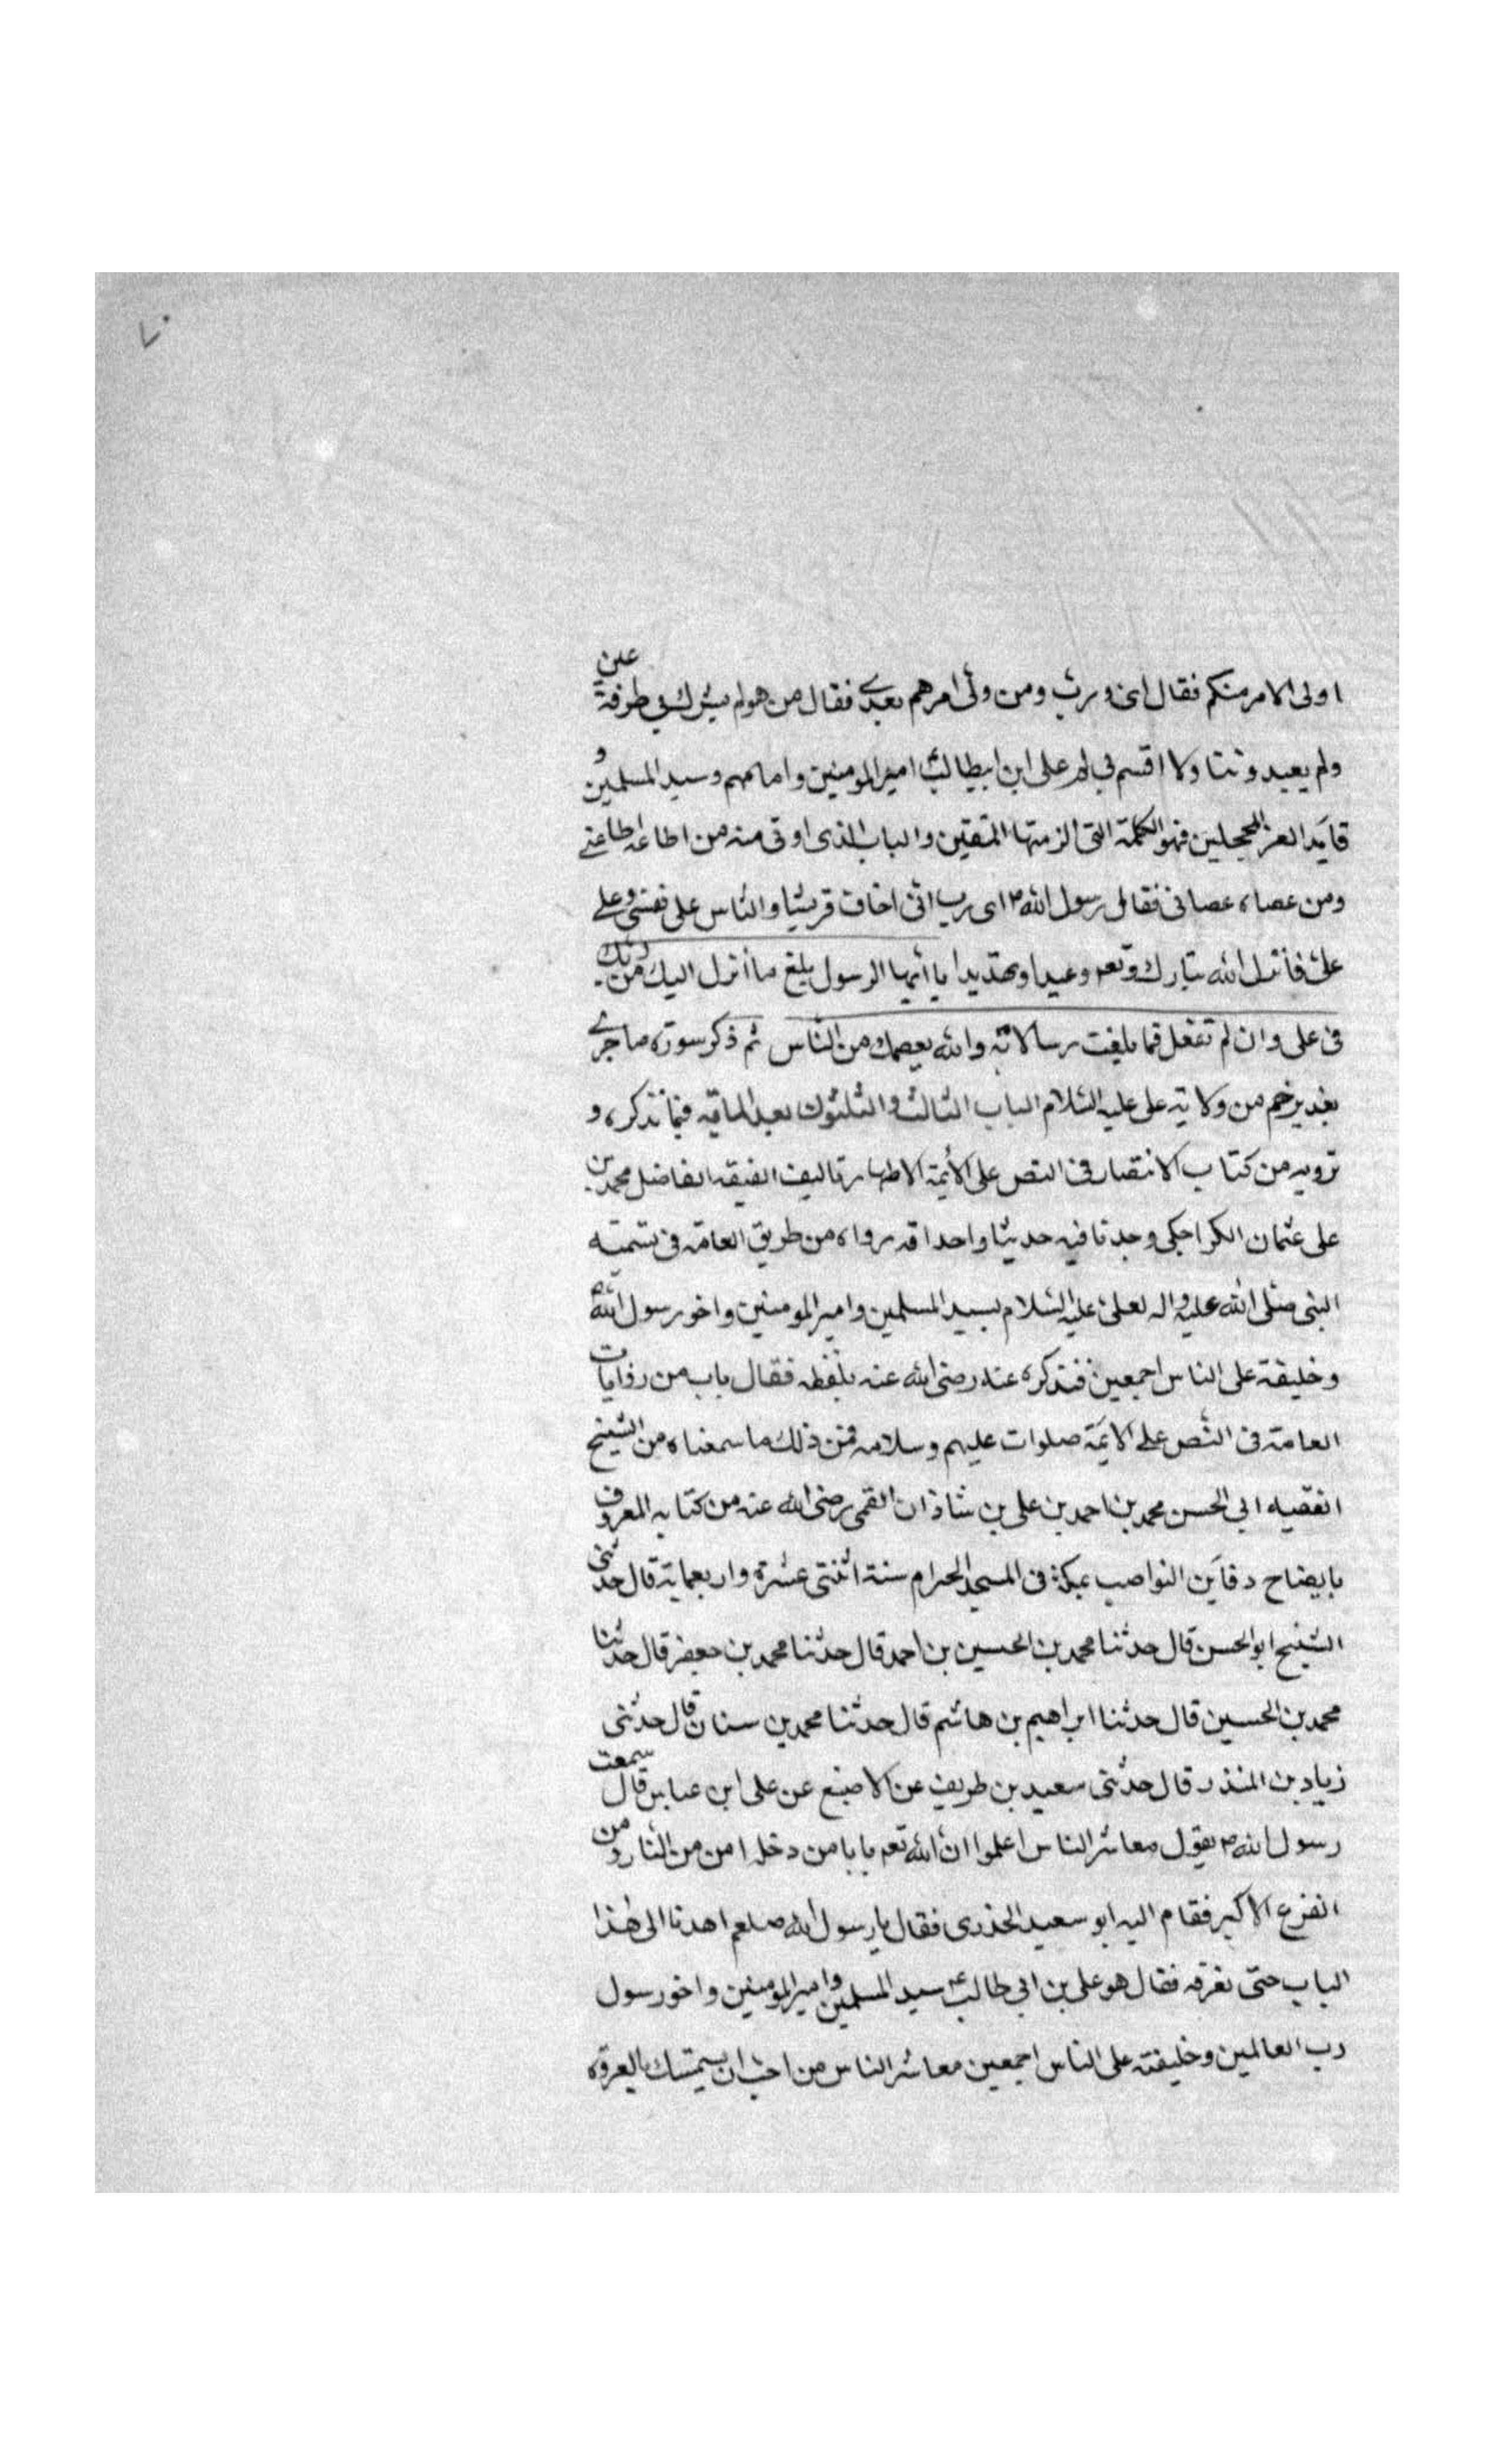 ٧٠
اولى الامر منكم فقال اى رب ومن ولى امرهم بعدى فقال من هو لم يشرك بى طرفة عين
ولم يعبد وثنا ولا اقسم بى لم على ابن ابيطالب امير المومنين وامامهم وسيد المسلمين و
قايد الغر المحجلين فهو الكلمة التى الزمتها المتقين والباب الذى اوتى منه من اطاعه اطاعنى
ومن عصاه عصانى فقال رسول الله ص اى رب انى اخاف قريشا والناس على نفسى وعلى
على فأنزل الله تبارك وتعه وعيدا وتهديدا يا ايها الرسول بلغ ما أنزل اليك من ربك
فى على وان لم تفعل فما بلغت رسالاته والله يعصمك من الناس ثم ذكر سورة ما جرى
بغدير خم من ولاية على عليه السلام الباب الثالث والثلثون بعد الماية فيما نذكره و
نرويه من كتاب الانتصار فى النص على الأئمة الاطهار تاليف الفيقه الفاضل محمد بن
على عثمان الكراجكى وجدنا فيه حديثا واحدا قد رواه من طريق العامة فى تسمية
النبى صلى الله عليه واله لعلى عليه السلام بسيد المسلمين وامير المومنين واخو رسول الله ص
وخليفة على الناس اجمعين فنذكره عنه رضى الله عنه بلفظه فقال باب من روايات
العامة فى النص على الايمة صلوات عليهم وسلامه فمن ذلك ما سمعناه من الشيخ
الفقيه ابى الحسن محمد بن احمد بن على بن شاذان القمى رضى الله عنه من كتابه المعروف
بايضاح دقاين النواصب بمكة فى المسجد الحرام سنة اثنتى عشرة واربعماية قال حدثنى
الشيخ ابو الحسن قال حدثنا محمد بن الحسين بن احمد قال حدثنا محمد بن جعفر قال حدثنا
محمد بن الحسين قال حدثنا ابراهيم بن هاشم قال حدثنا محمد بن سنان قال حدثنى
زياد بن المنذر قال حدثنى سعيد بن طريف عن الاصبغ عن على ابن عباس قال سمعت
رسول الله ص يقول معاشر الناس اعلموا ان الله تعه بابا من دخله امن من النار ومن
الفزع الاكبر فقام اليه ابو سعيد الخدرى فقال يا رسول الله صلعم اهدنا الى هذا
الباب حتى نعرفه فقال هو على بن ابى طالب ع سيد المسلمين وامير المومنين واخو رسول
رب العالمين وخليفته على الناس اجمعين معاشر الناس من احب ان يستمسك بالعروة